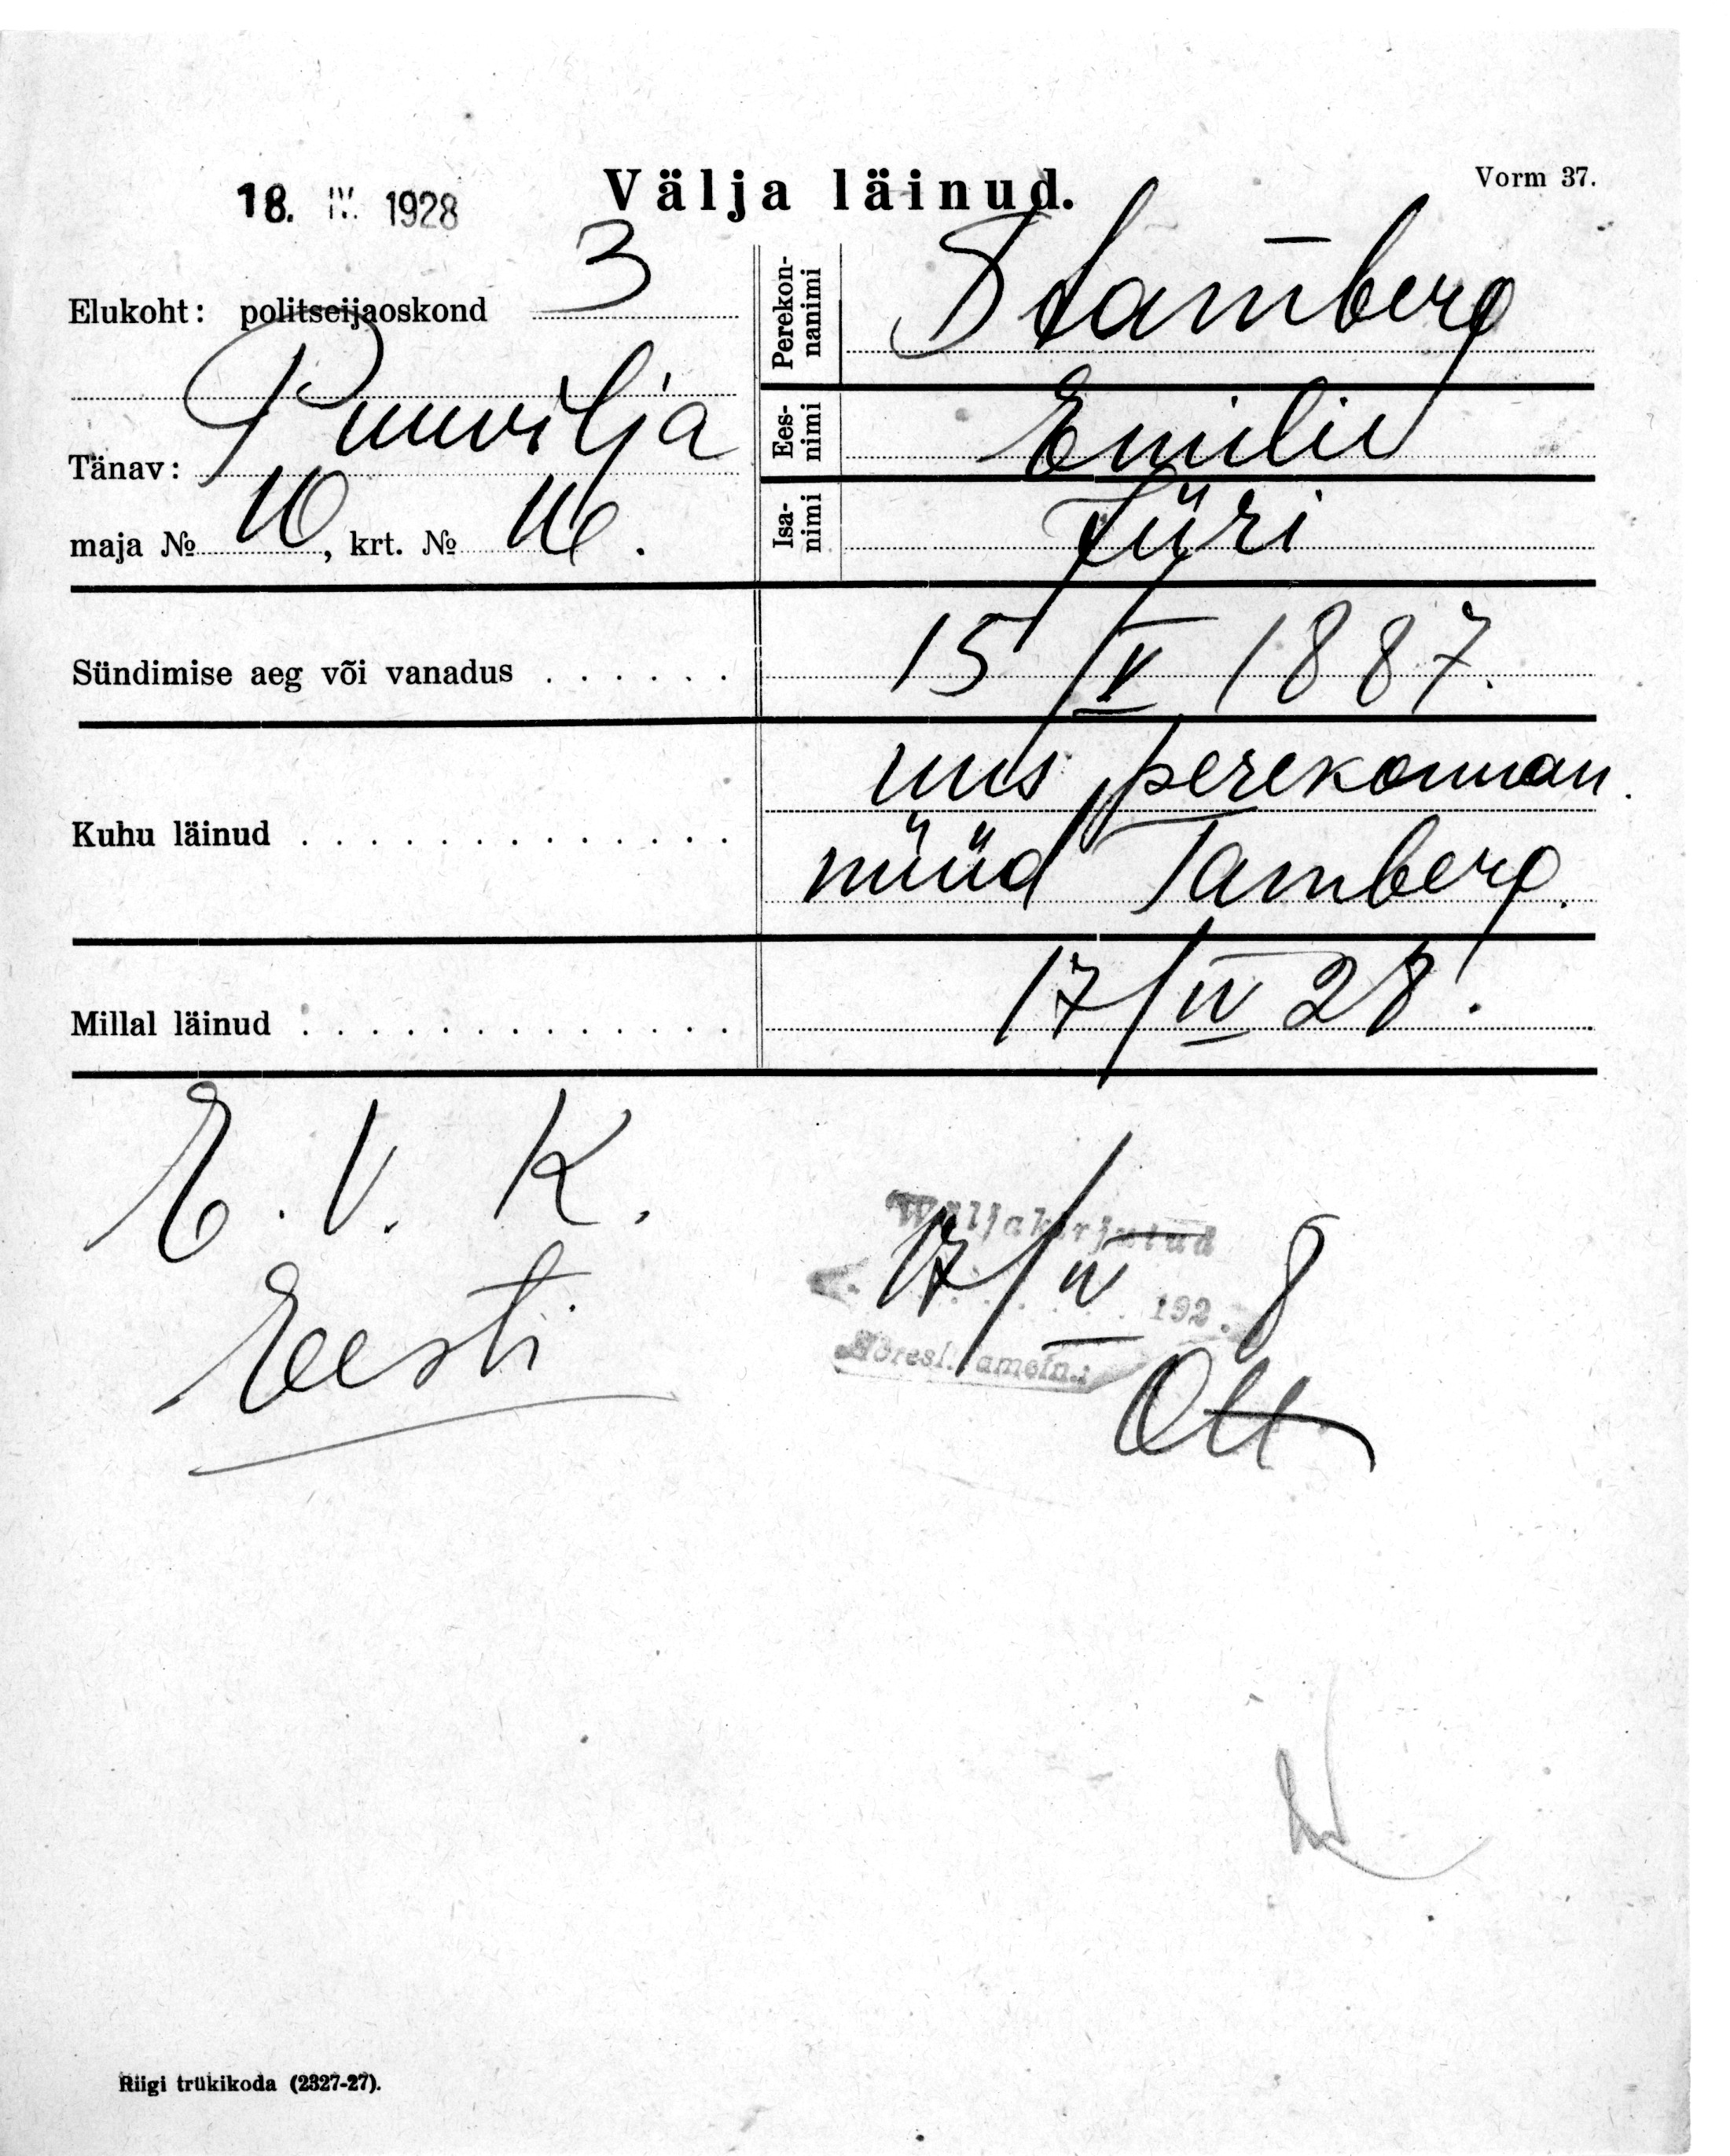 18. IV. 1928
Välja läinud.
Vorm 37.
Elukoht: politseijaoskond 3
Tänav: Puuvilja
maja № 10, krt. № 16.
Perekonnanimi Stam̄berg
Eesnimi Emilie
Isanimi Jüri
Sündimise aeg või vanadus . . . . . . 15/V 1887.
Kuhu läinud . . . . . . . . . . . . . uus perekonnan.
nüüd Tamberg.
Millal läinud . . . . . . . . . . . . . 17/IV 28.
E. V. K.
Eesti
Wäljakirjutud
17/IV 192. 8
Ott
Riigi trükikoda (2327-27).